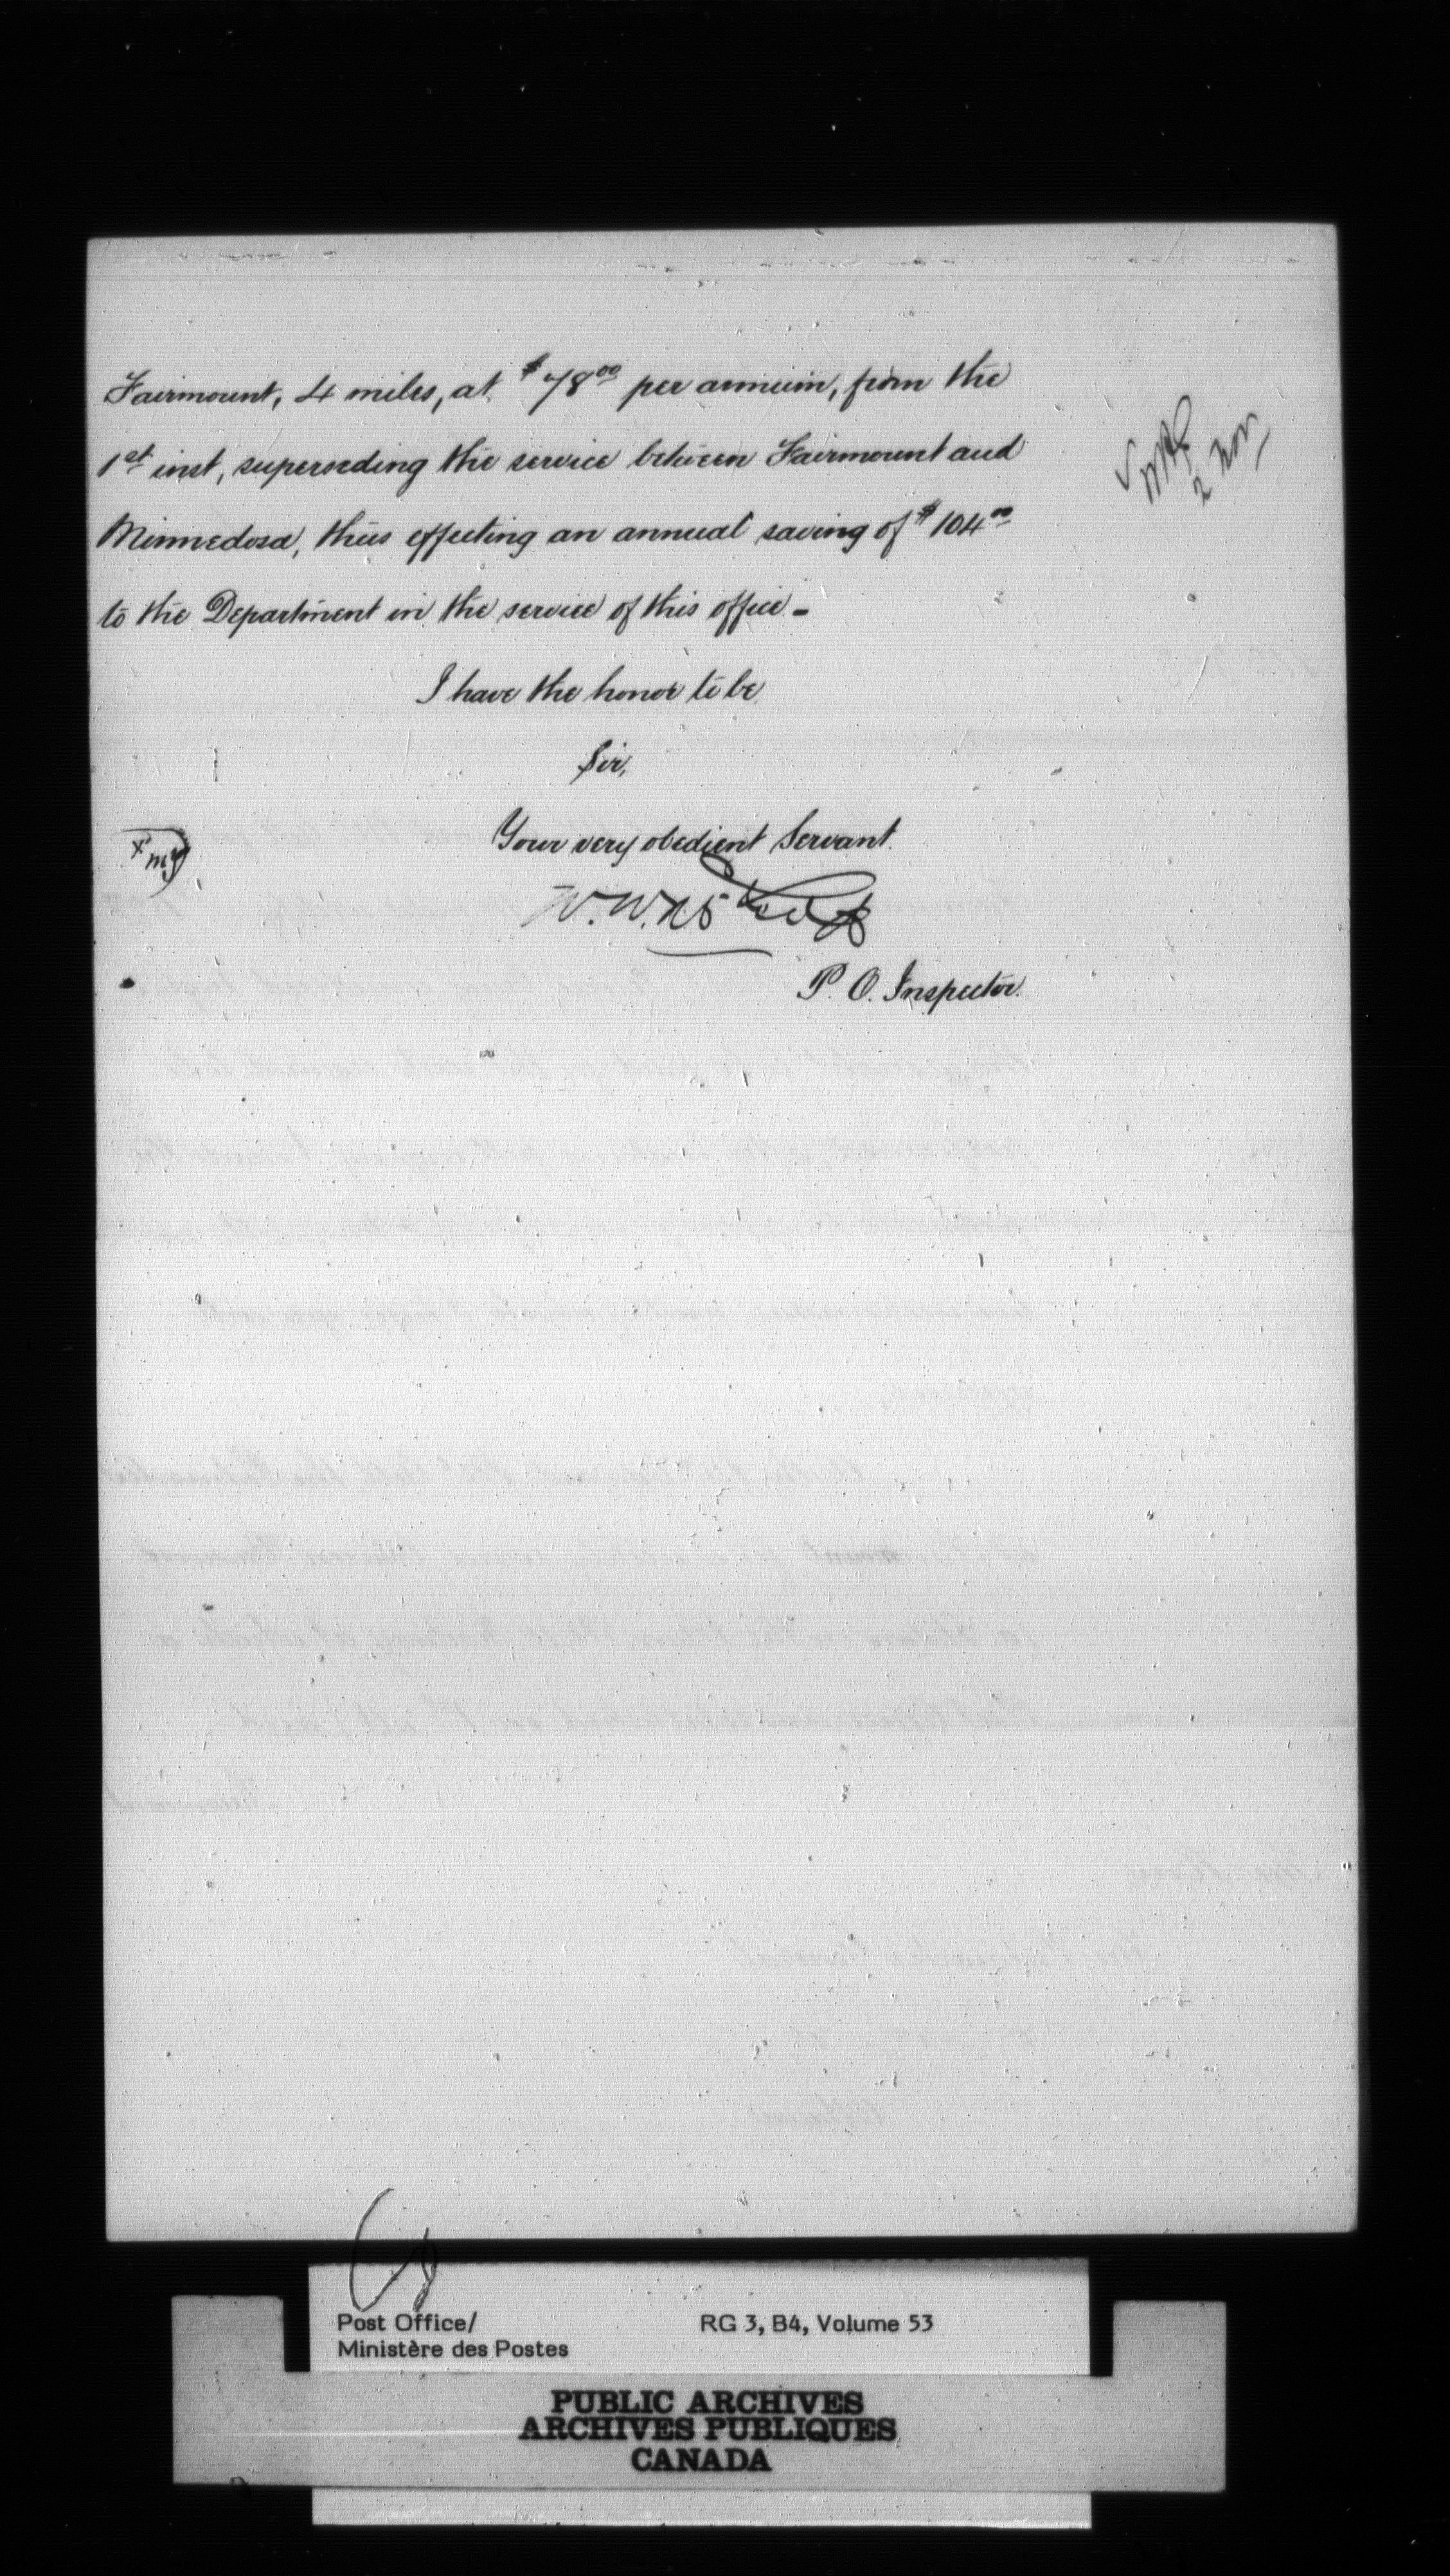 Fairmount, 4 miles, at $78.00 per annum, from the
1st inst, superseding the service between Fairmount and
Minnedosa, thus effecting an annual saving of $104.00
to the Department in the service of this office-
2 Nov
I have the honor to be
Sir,
Your very obedient Servant.
W. W.
P. O. Inspector.
Post Office/
Ministère des Postes
RG 3, B4, Volume 53
PUBLIC ARCHIVES
ARCHIVES PUBLIQUES
CANADA